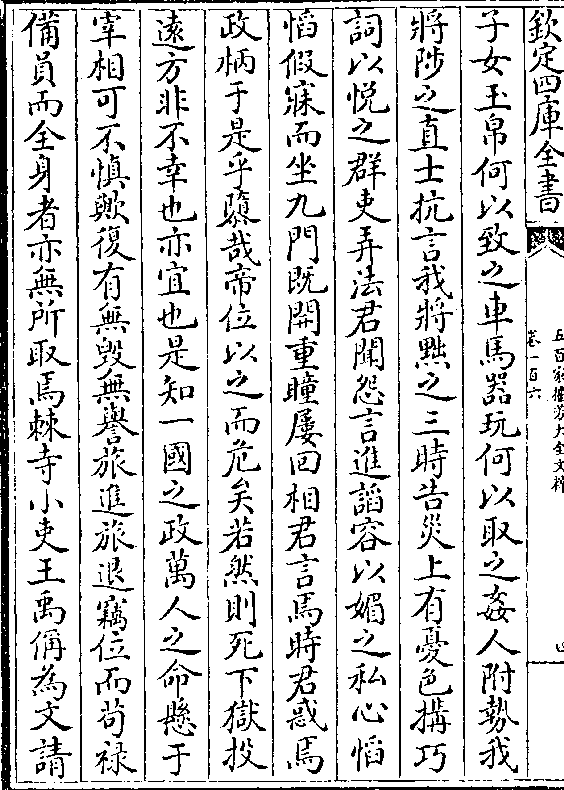 欽定四庫全書
卷一百六
子女玉帛何以致之車馬器玩何以取之姦人附勢我
將陟之直士抗言我將黜之三時告災上有憂色搆巧
詞以悅之群吏弄法君聞怨言進諂容以媚之私心慆
慆假寐而坐九門既開重瞳屢回相君言焉時君惑焉
政柄于是乎隳哉帝位以之而危矣若然則死下獄投
遠方非不幸也亦宜也是知一國之政萬人之命懸于
宰相可不慎歟復有無毀無譽旅進旅退竊位而苟祿
備員而全身者亦無所取焉棘寺小吏王禹偁為文請